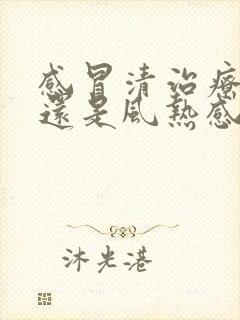 感冒清治療
還是風熱感
沐光港